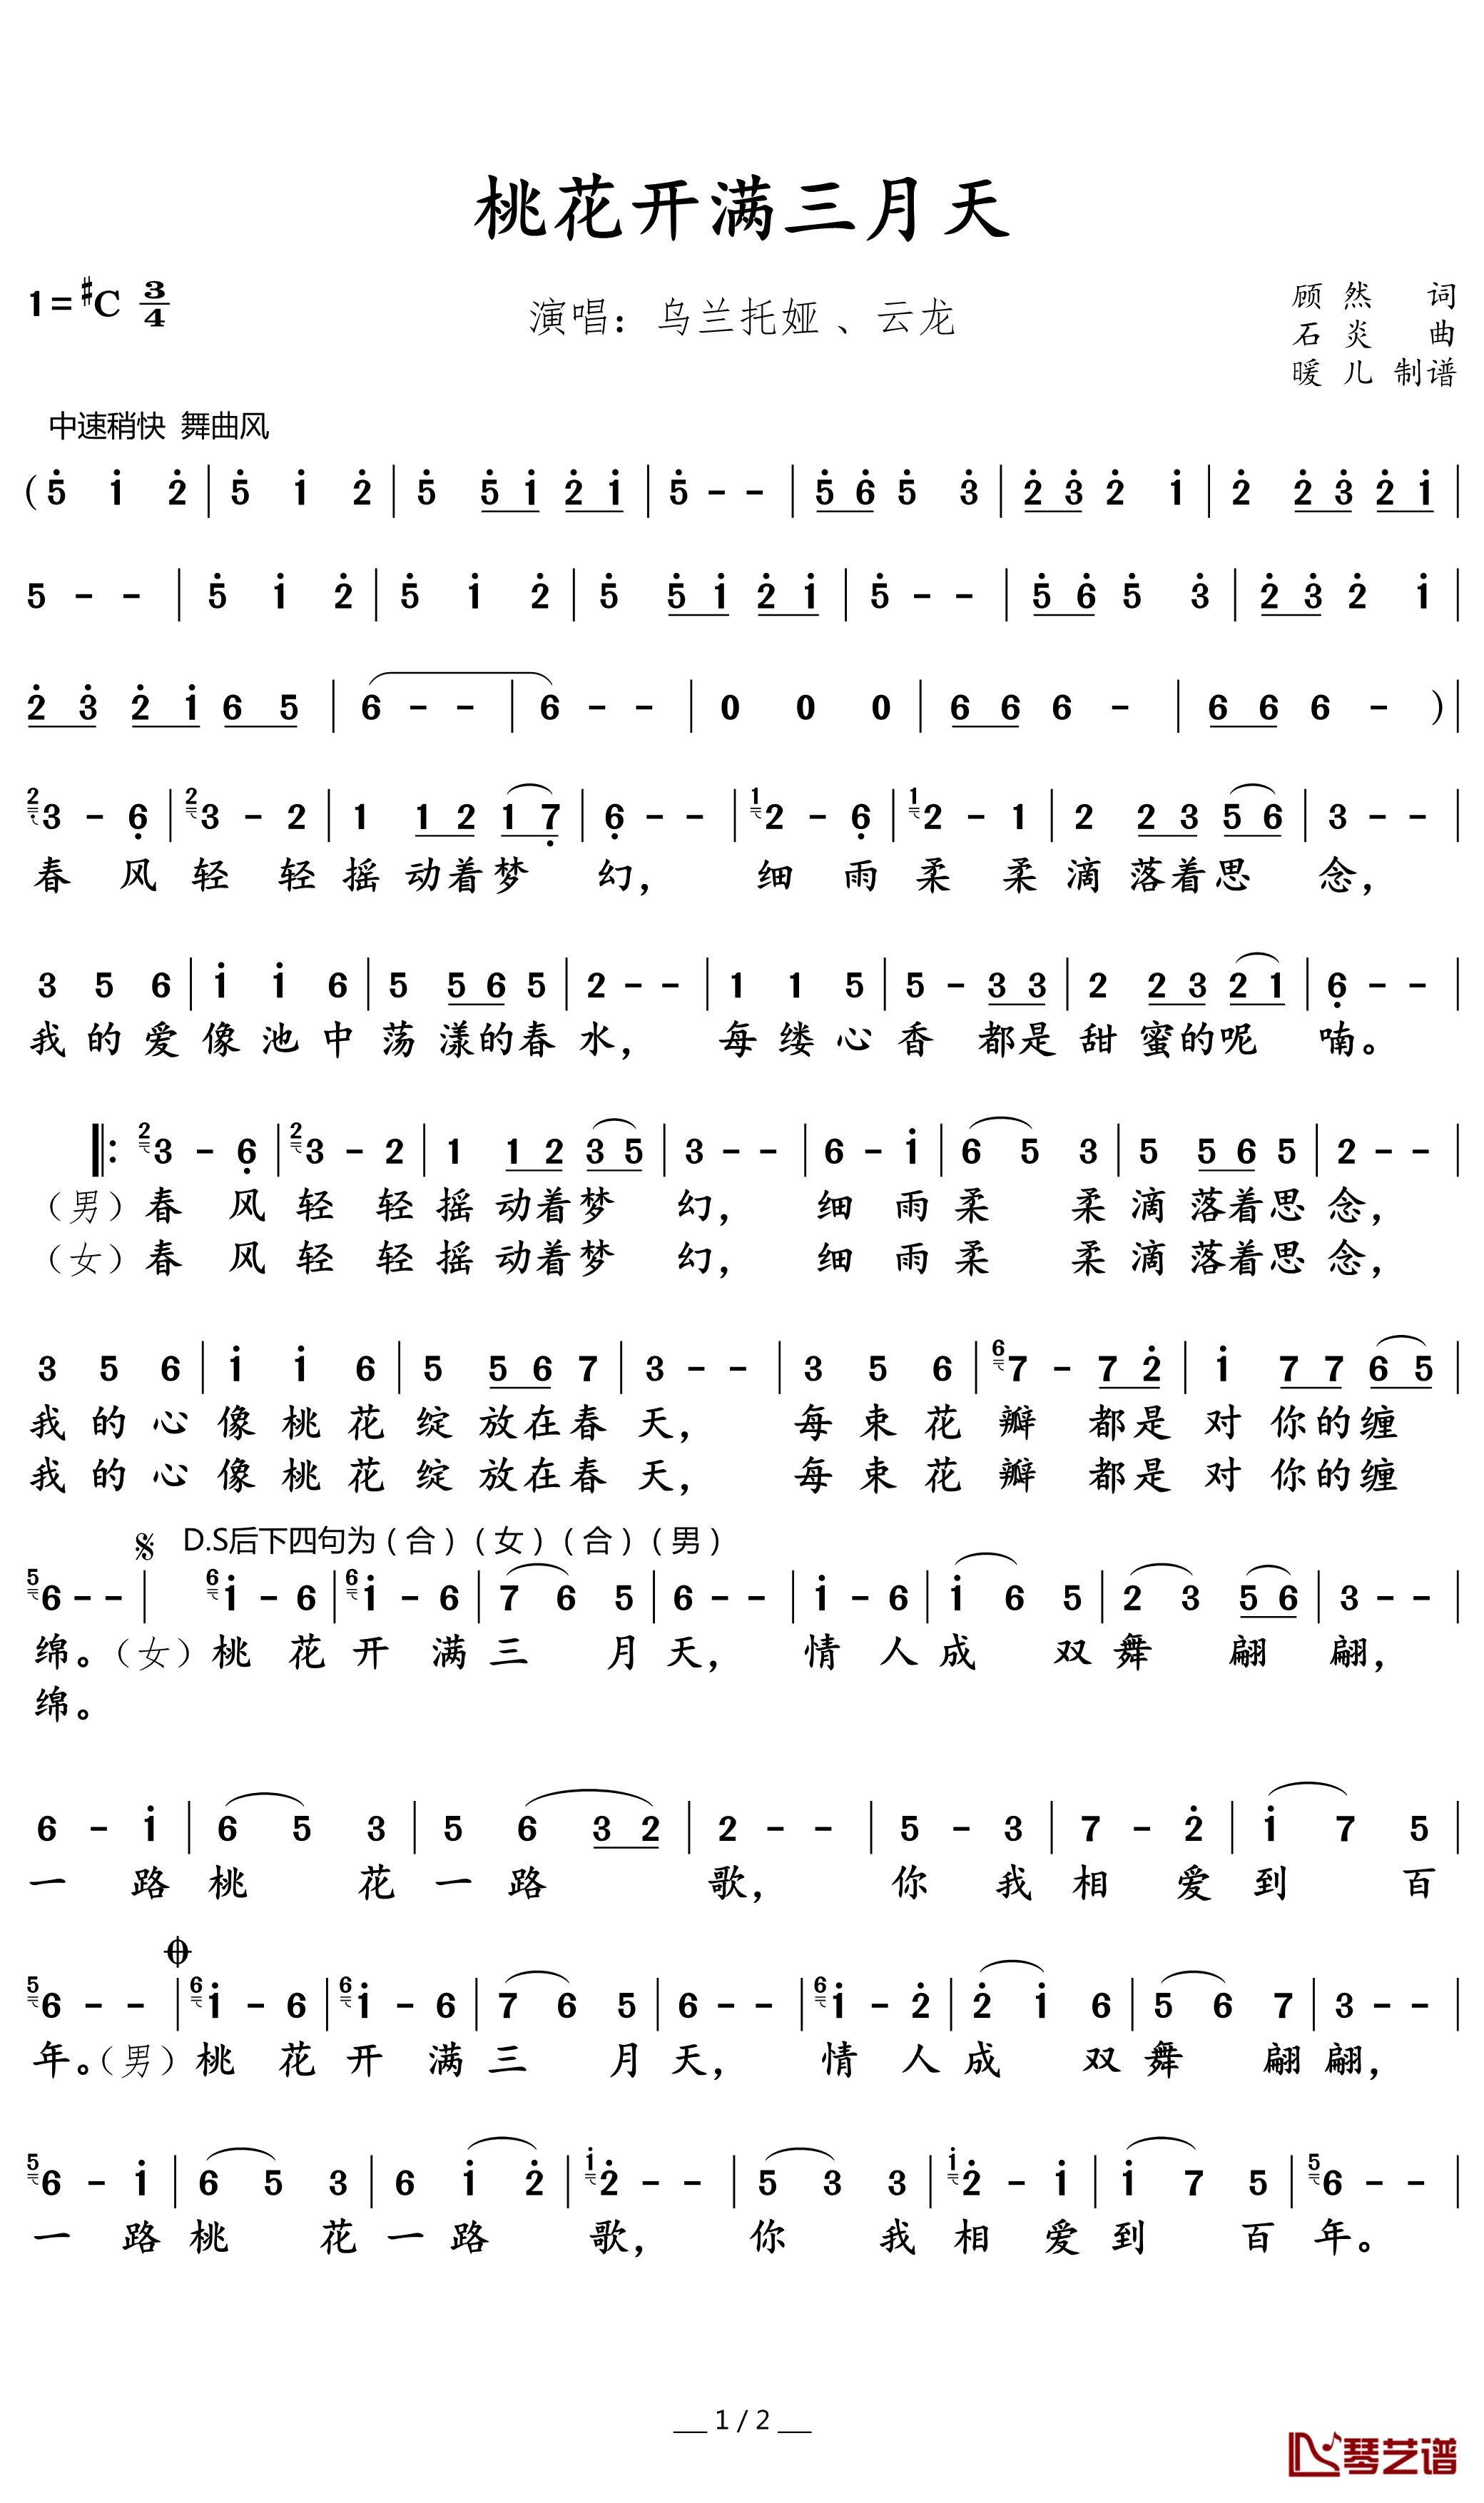 桃花开满三月天
1=#C 3/4
演唱：乌兰托娅、云龙
顾然 词
石炎 曲
暖儿 制谱
中速稍快 舞曲风
(5̇ 1̇ 2̇ | 5̇ 1̇ 2̇ | 5̇ 5̇ 1̇ 2̇ 1̇ | 5̇ - - | 5̇ 6̇ 5̇ 3̇ | 2̇ 3̇ 2̇ 1̇ | 2̇ 2̇ 3̇ 2̇ 1̇ |
5 - - | 5̇ 1̇ 2̇ | 5̇ 1̇ 2̇ | 5̇ 5̇ 1̇ 2̇ 1̇ | 5̇ - - | 5̇ 6̇ 5̇ 3̇ | 2̇ 3̇ 2̇ 1̇ |
2̇ 3̇ 2̇ 1̇ 6 5 | 6 - - | 6 - - | 0 0 0 | 6 6 6 - | 6 6 6 - ) |
2 3 - 6̣ | 2 3 - 2 | 1 1 2 1 7̣ | 6̣ - - | 1 2 - 6̣ | 1 2 - 1 | 2 2 3 5 6 | 3 - - |
春风轻轻摇动着梦幻，细雨柔柔滴落着思念，
3 5 6 | 1̇ 1̇ 6 | 5 5 6 5 | 2 - - | 1 1 5 | 5 - 3 3 | 2 2 3 2 1 | 6̣ - - |
我的爱像池中荡漾的春水，每缕心香都是甜蜜的呢喃。
|: 2 3 - 6̣ | 2 3 - 2 | 1 1 2 3 5 | 3 - - | 6 - 1̇ | 6 5 3 | 5 5 6 5 | 2 - - |
（男）春风轻轻摇动着梦幻，细雨柔柔滴落着思念，
（女）春风轻轻摇动着梦幻，细雨柔柔滴落着思念，
3 5 6 | 1̇ 1̇ 6 | 5 5 6 7 | 3 - - | 3 5 6 | 6 7 - 7 2̇ | 1̇ 7 7 6 5 |
我的心像桃花绽放在春天，每束花瓣都是对你的缠
我的心像桃花绽放在春天，每束花瓣都是对你的缠
𝄋 D.S后下四句为（合）（女）（合）（男）
5 6 - - | 6 1̇ - 6 | 6 1̇ - 6 | 7 6 5 | 6 - - | 1̇ - 6 | 1̇ 6 5 | 2 3 5 6 | 3 - - |
绵。（女）桃花开满三月天，情人成双舞翩翩，
绵。
6 - 1̇ | 6 5 3 | 5 6 3 2 | 2 - - | 5 - 3 | 7 - 2̇ | 1̇ 7 5 |
一路桃花一路歌，你我相爱到百
𝄌
5 6 - - | 6 1̇ - 6 | 6 1̇ - 6 | 7 6 5 | 6 - - | 6 1̇ - 2̇ | 2̇ 1̇ 6 | 5 6 7 | 3 - - |
年。（男）桃花开满三月天，情人成双舞翩翩，
5 6 - 1̇ | 6 5 3 | 6 1̇ 2̇ | 1̇ 2̇ - - | 5 3 3 | 1̇ 2̇ - 1̇ | 1̇ 7 5 | 5 6 - - |
一路桃花一路歌，你我相爱到百年。
1 / 2
琴艺谱